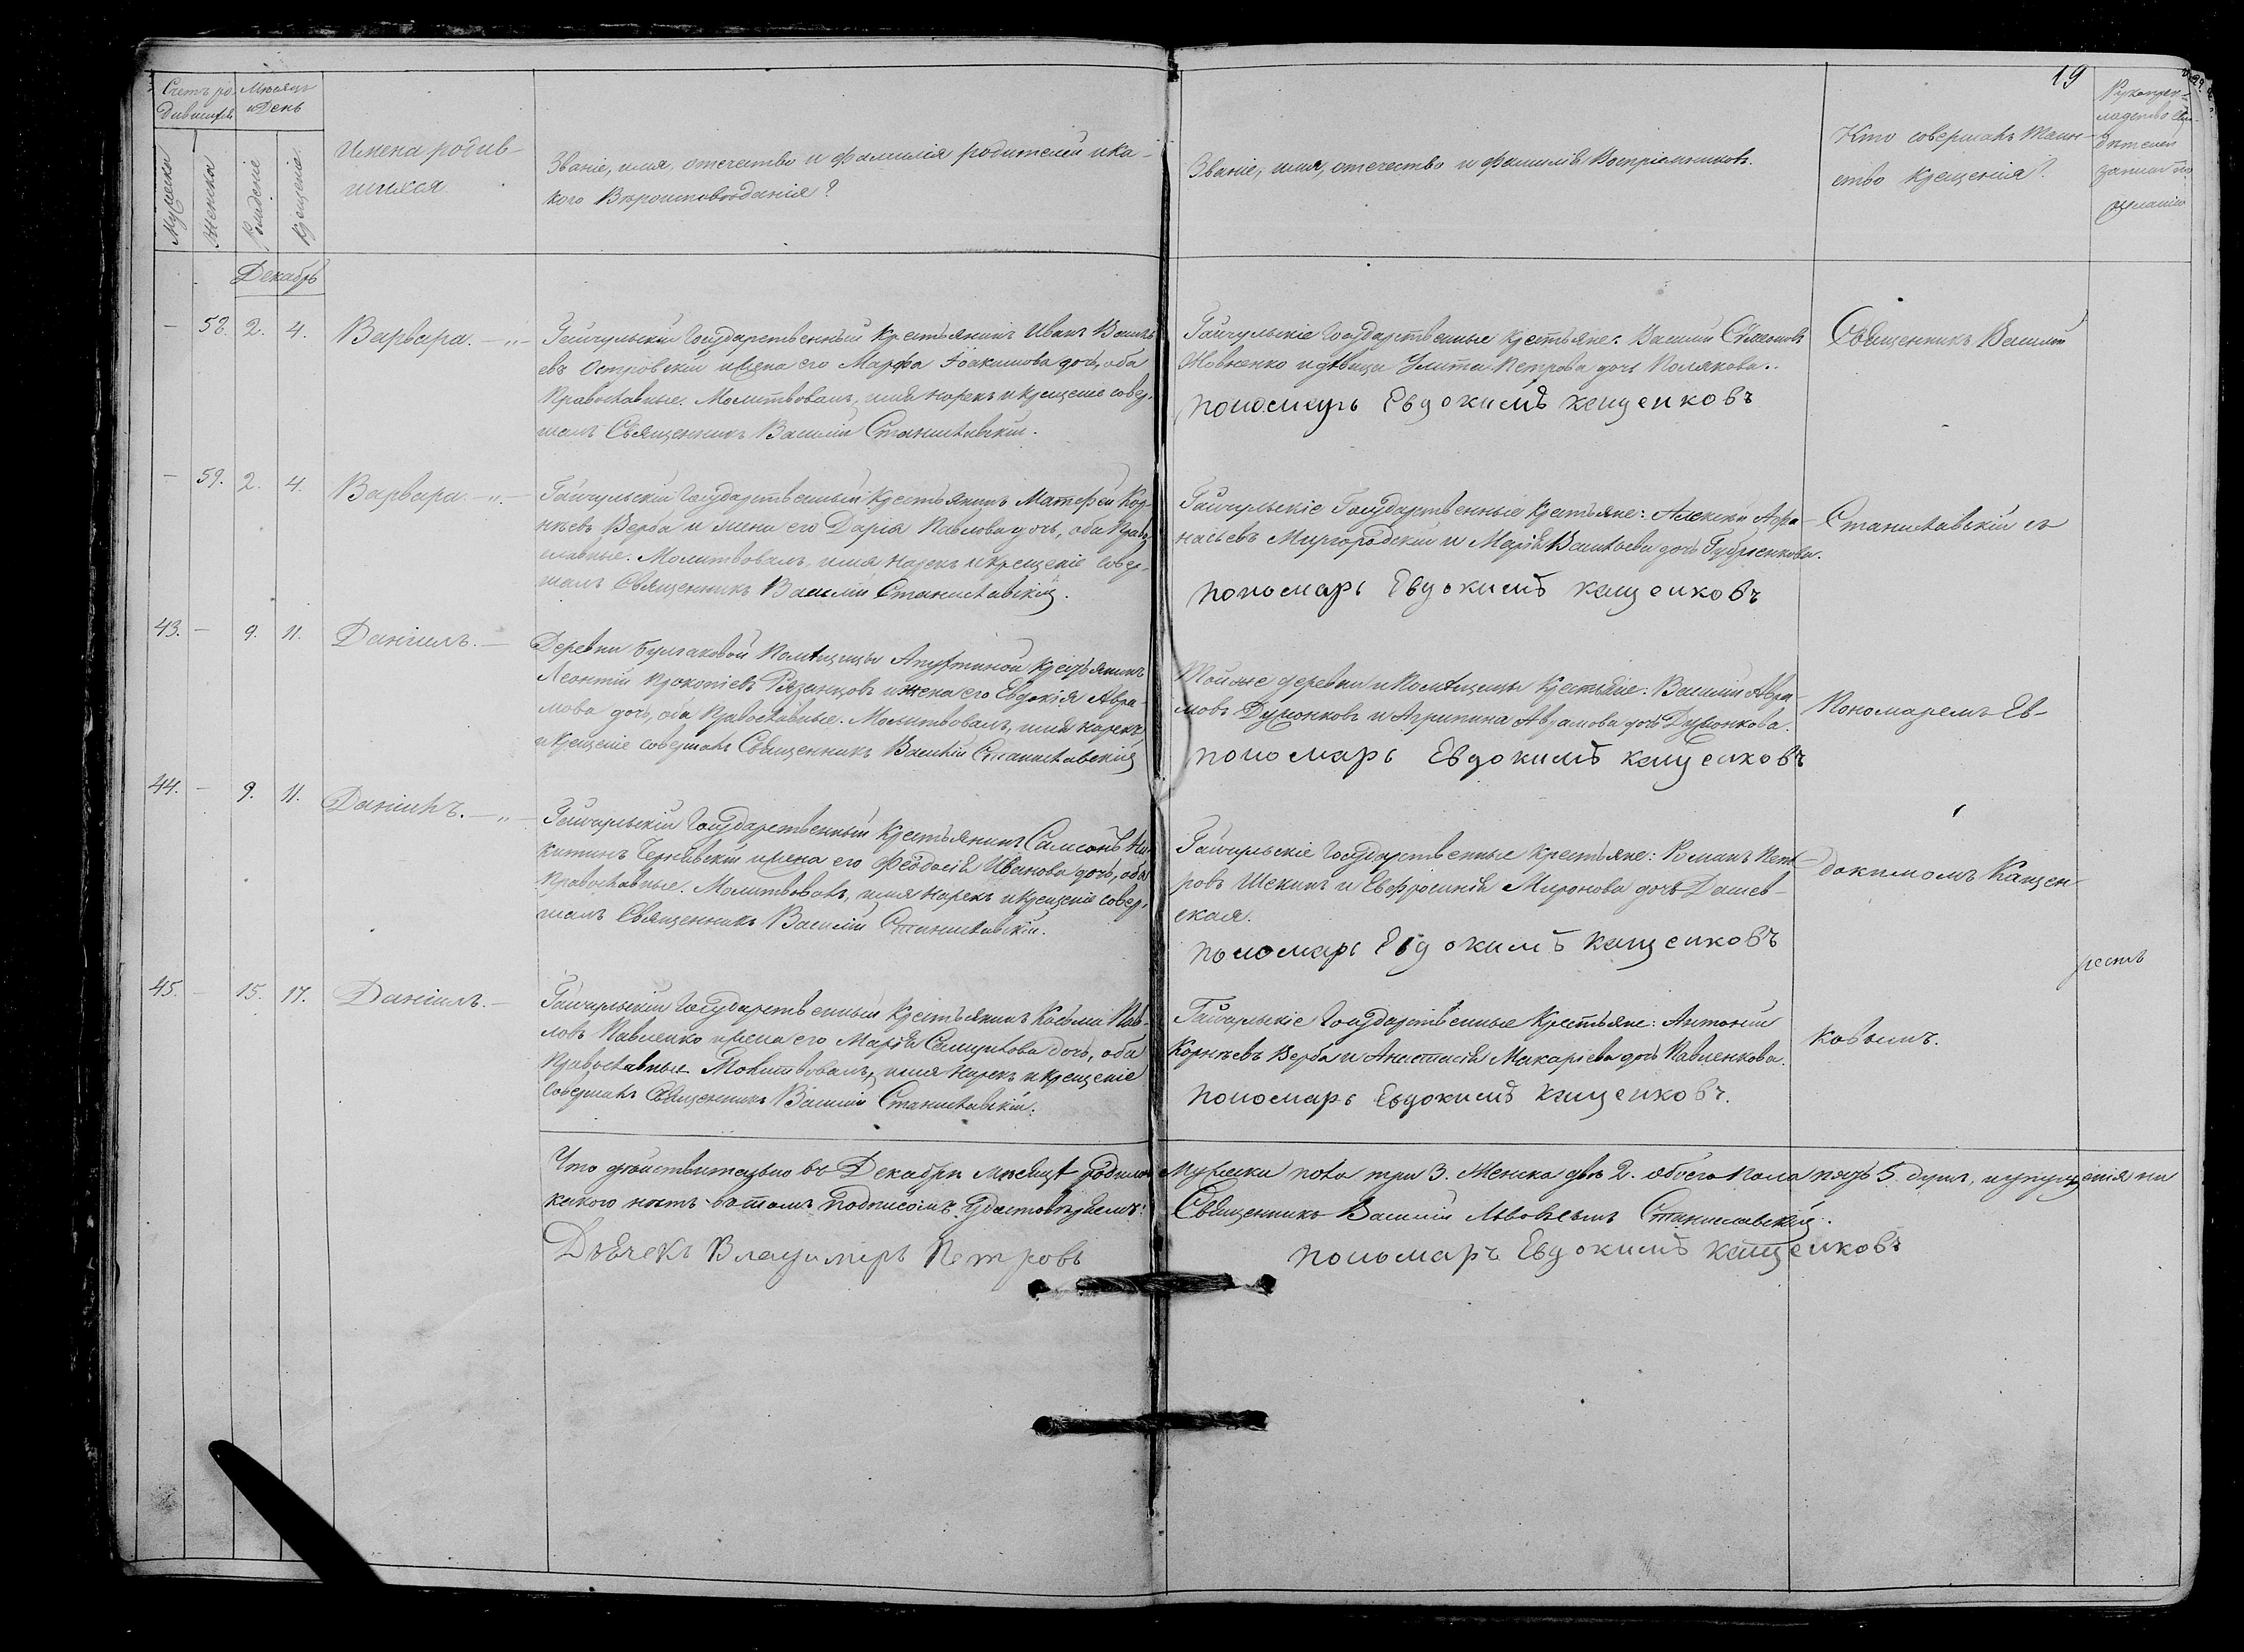 19
Счетъ ро-
дившихся
Мѣсяцъ
и День
Мужеска
Женска
Рожденіе
Крещеніе
Имена родив-
шихся
Званіе, имя, отечество и фамилія родителей и ка-
кого Вѣроисповѣданія?
Званіе, имя, отечество и фамилія Воспріемниковъ.
Кто совершалъ Таин-
ство Крещенія?
Рукопри-
кладство Сви-
дѣтелей
записи по
желанію
Декабрь
– 58. 2. 4. Варвара. – „ –
Гайчульскій Государственный Крестьянинъ Иванъ Василь-
евъ Островскій и жена его Марфа Іоакимова дочь, оба
Православные. Молитвовалъ, имя нарекъ и крещеніе совер-
шалъ Священникъ Василій Станиславскій.
Гайчульскіе Государственные Крестьяне: Василій Симеоновъ
Жовненко и дѣвица Улита Петрова дочь Полякова.
пономарь Евдокимъ Кащенковъ
Священникъ Василій
– 59. 2. 4. Варвара. – „ –
Гайчульскій Государственный Крестьянинъ Матфей Кор-
нѣевъ Верба и жена его Дарія Павлова дочь, оба Право-
славные. Молитвовалъ, имя нарекъ и крещеніе совер-
шалъ Священникъ Василій Станиславскій.
Гайчульскіе Государственные Крестьяне: Алексѣй Афа-
насьевъ Миргородскій и Марія Васильева дочь Губріенкова.
пономарь Евдокимъ Кащенковъ
Станиславскій съ
43. – 9. 11. Даніилъ. –
Деревни Булгаковой Помѣщицы Апухтиной Крестьянинъ
Леонтій Прокопіевъ Рязанцовъ и жена его Евдокія Авра-
мова дочь, оба Православные. Молитвовалъ, имя нарекъ,
и крещеніе совершалъ Священникъ Василій Станиславскій
Той же деревни и Помѣщицы Крестьяне: Василій Авра-
мовъ и Агрипина Аврамова дочь
пономарь Евдокимъ Кащенковъ
Пономаремъ Ев-
44. – 9. 11. Даніилъ. – „ –
Гайчульскій Государственный Крестьянинъ Самсонъ Ни-
китинъ Чернявскій и жена его Феодосія Иванова дочь, оба
Православные. Молитвовалъ, имя нарекъ и крещеніе совер-
шалъ Священникъ Василій Станиславскій.
Гайчульскіе Государственные Крестьяне: Романъ Пет-
ровъ Шекинъ и Евфросинія Миронова дочь Дашев-
ская.
пономарь Евдокимъ Кащенковъ
докимомъ Кащен-
45. – 15. 17. Даніилъ. –
Гайчульскій Государственный Крестьянинъ Косьма Пав-
ловъ Павленко и жена его Марія Самуилова дочь, оба
Православные. Молитвовалъ, имя нарекъ и крещеніе
Совершалъ Священникъ Василій Станиславскій.
Гайчульскіе Государственные Крестьяне: Антоній
Корнѣевъ Верба и Анастасія Макаріева дочь Павленкова.
пономарь Евдокимъ Кащенковъ.
ковымъ.
Что дѣйствительно въ Декабрѣ мѣсяцѣ родилось Мужеска пола три 3. Женска двѣ 2. обоего пола пять 5. душъ, и упущенія ни
какого нѣтъ въ томъ подписомъ удостовѣряемъ: Священникъ Василій Станиславскій.
Дьячекъ Владимиръ Петровъ
пономарь Евдокимъ Кащенковъ